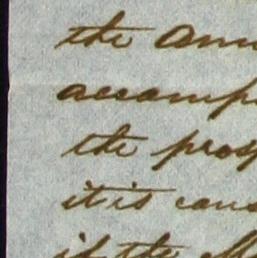 the Ann
accomp
the prosp
it is caus
if the